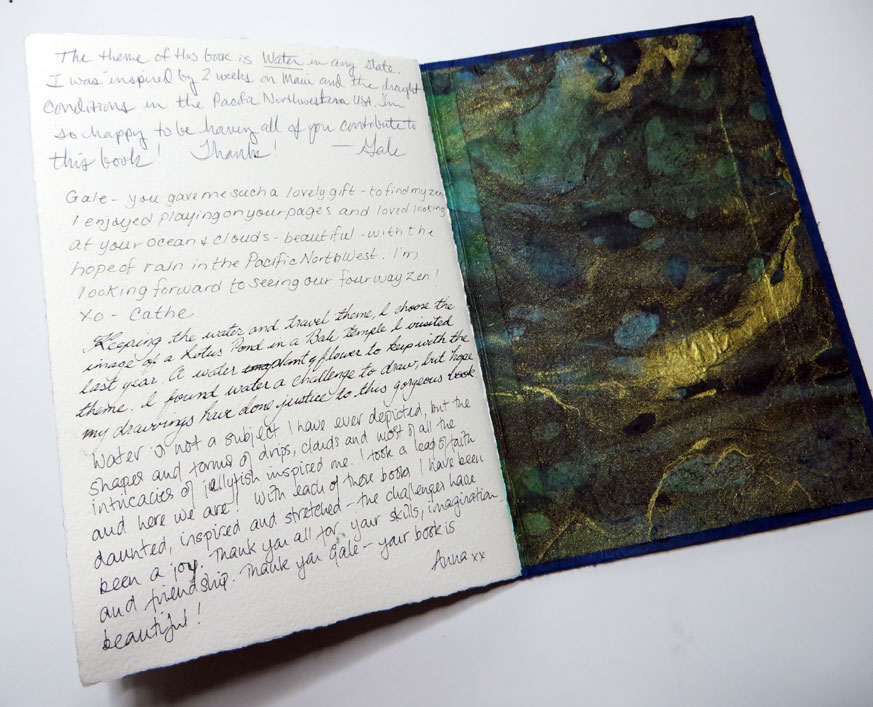 The theme of this book is Water in any state.
I was inspired by 2 weeks on Maui and the draught
conditions in the Pacific Northwestern USA. I'm
so happy to be having all of you contribute to
this book! Thanks! — Gale
Gale - you gave me such a lovely gift - to find my zen
I enjoyed playing on your pages and loved looking
at your ocean & clouds - beautiful - with the
hope of rain in the Pacific NorthWest. I'm
looking forward to seeing our four way zen!
xo - Cathe
Keeping the water and travel theme, I choose the
image of a Lotus Pond in a Bali temple I visited
last year. A water plant & flower to keep with the
theme. I found water a challenge to draw, but hope
my drawings have done justice to this gorgeous book
Water is not a subject I have ever depicted, but the
shapes and forms of drips, clouds and most of all the
intricacies of jellyfish inspired me. I took a leap of faith
and here we are! With each of these books I have been
daunted, inspired and stretched - the challenges have
been a joy. Thank you all for your skills, imagination
and friendship. Thank you Gale - your book is
beautiful! Anna xx